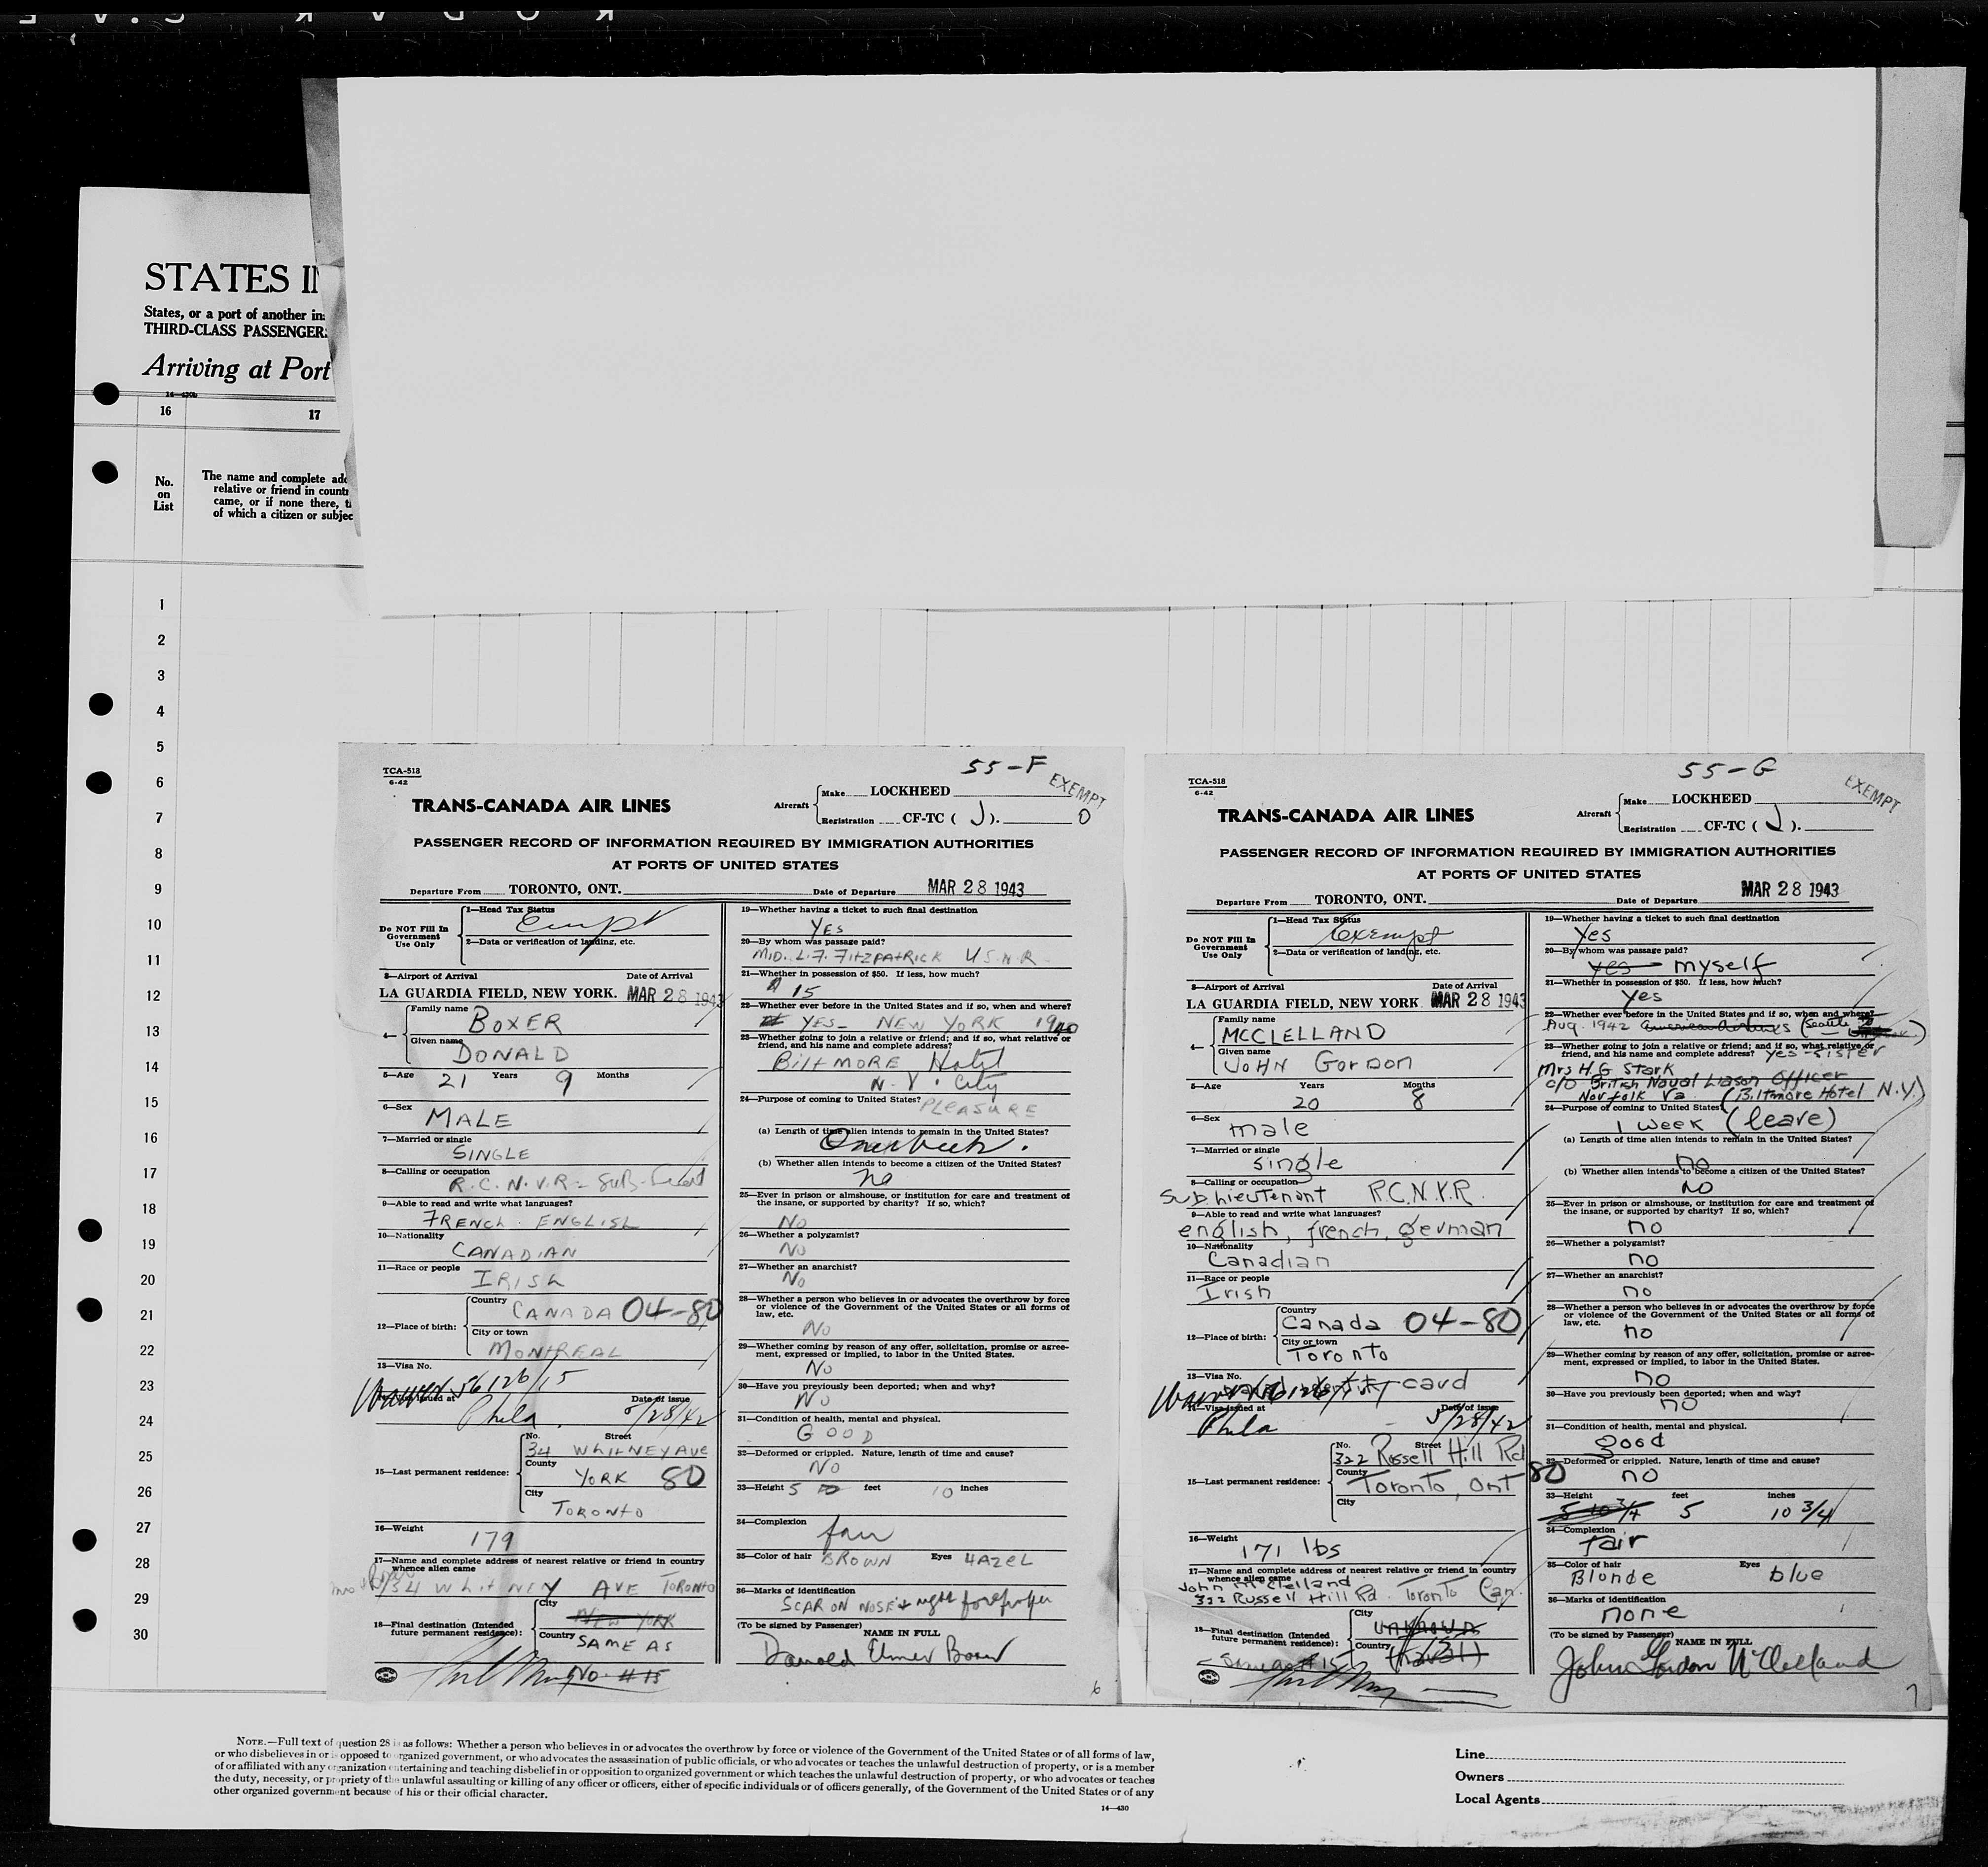 STATES IN
States, or a port of another in
THIRD-CLASS PASSENGER
Arriving at Port
14—430b
16 17
No. on List
The name and complete add
relative or friend in countr
came, or if none there, t
of which a citizen or subjec
1
2
3
4
5
6
7
8
9
10
11
12
13
14
15
16
17
18
19
20
21
22
23
24
25
26
27
28
29
30
55-F
EXEMPT
TCA-518
6-42
TRANS-CANADA AIR LINES
Aircraft Make LOCKHEED
Registration CF-TC ( J ). 0
PASSENGER RECORD OF INFORMATION REQUIRED BY IMMIGRATION AUTHORITIES
AT PORTS OF UNITED STATES
Departure From TORONTO, ONT. Date of Departure MAR 28 1943
Do NOT Fill In Government Use Only
1—Head Tax Status
2—Data or verification of landing, etc.
3—Airport of Arrival Date of Arrival
LA GUARDIA FIELD, NEW YORK. MAR 28 1943
4— Family name BOXER
Given name DONALD
5—Age 21 Years 9 Months
6—Sex MALE
7—Married or single SINGLE
8—Calling or occupation R.C.N.V.R - SUB-
9—Able to read and write what languages?
FRENCH ENGLISH
10—Nationality CANADIAN
11—Race or people IRISH
12—Place of birth: Country CANADA 04-80
City or town MONTREAL
13—Visa No. 56126/15
14—Visa issued at Phila. Date of issue 5/28/42
15—Last permanent residence: No. Street 34 WHITNEY AVE
County YORK 80
City TORONTO
16—Weight 179
17—Name and complete address of nearest relative or friend in country
whence alien came
34 WHITNEY AVE TORONTO
18—Final destination (Intended
future permanent residence): City NEW YORK
Country SAME AS
NO. #15
19—Whether having a ticket to such final destination
YES
20—By whom was passage paid?
MID. L.F. FITZPATRICK U.S.N.R.
21—Whether in possession of $50. If less, how much?
15
22—Whether ever before in the United States and if so, when and where?
YES - NEW YORK 1940
23—Whether going to join a relative or friend; and if so, what relative or
friend, and his name and complete address?
BILTMORE Hotel
N.Y. City
24—Purpose of coming to United States? PLEASURE
(a) Length of time alien intends to remain in the United States?
One week.
(b) Whether alien intends to become a citizen of the United States?
no
25—Ever in prison or almshouse, or institution for care and treatment of
the insane, or supported by charity? If so, which?
NO
26—Whether a polygamist?
NO
27—Whether an anarchist?
No
28—Whether a person who believes in or advocates the overthrow by force
or violence of the Government of the United States or all forms of
law, etc.
No
29—Whether coming by reason of any offer, solicitation, promise or agree-
ment, expressed or implied, to labor in the United States.
No
30—Have you previously been deported; when and why?
NO
31—Condition of health, mental and physical.
GOOD
32—Deformed or crippled. Nature, length of time and cause?
NO
33—Height 5 feet 10 inches
34—Complexion fair
35—Color of hair BROWN Eyes HAZEL
36—Marks of identification
SCAR ON NOSE + right
(To be signed by Passenger) NAME IN FULL
Donald Elmer Boxer
6
55-G
EXEMPT
TCA-518
6-42
TRANS-CANADA AIR LINES
Aircraft Make LOCKHEED
Registration CF-TC ( J ).
PASSENGER RECORD OF INFORMATION REQUIRED BY IMMIGRATION AUTHORITIES
AT PORTS OF UNITED STATES
Departure From TORONTO, ONT. Date of Departure MAR 28 1943
Do NOT Fill In Government Use Only
1—Head Tax Status Exempt
2—Data or verification of landing, etc.
3—Airport of Arrival Date of Arrival
LA GUARDIA FIELD, NEW YORK. MAR 28 1943
4— Family name MCCLELLAND
Given name JOHN Gordon
5—Age 20 Years 8 Months
6—Sex male
7—Married or single single
8—Calling or occupation
Sub Lieutenant R.C.N.V.R.
9—Able to read and write what languages?
english, french, german
10—Nationality Canadian
11—Race or people Irish
12—Place of birth: Country Canada 04-80
City or town Toronto
13—Visa No. card
14—Visa issued at Phila Date of issue 5/28/42
15—Last permanent residence: No. Street 322 Russell Hill Rd
County Toronto, Ont 80
City
16—Weight 171 lbs
17—Name and complete address of nearest relative or friend in country
whence alien came
John McClelland
322 Russell Hill Rd. Toronto Can.
18—Final destination (Intended
future permanent residence): City unknown
Country
Same as #15
19—Whether having a ticket to such final destination
Yes
20—By whom was passage paid?
yes myself
21—Whether in possession of $50. If less, how much?
Yes
22—Whether ever before in the United States and if so, when and where?
Aug. 1942 (Seattle
23—Whether going to join a relative or friend; and if so, what relative or
friend, and his name and complete address? yes - sister
Mrs H.G Stark
c/o British Naval Liason Officer
Norfolk Va. (Biltmore Hotel N.Y.)
24—Purpose of coming to United States?
1 week (leave)
(a) Length of time alien intends to remain in the United States?
no
(b) Whether alien intends to become a citizen of the United States?
no
25—Ever in prison or almshouse, or institution for care and treatment of
the insane, or supported by charity? If so, which?
no
26—Whether a polygamist?
no
27—Whether an anarchist?
no
28—Whether a person who believes in or advocates the overthrow by force
or violence of the Government of the United States or all forms of
law, etc.
no
29—Whether coming by reason of any offer, solicitation, promise or agree-
ment, expressed or implied, to labor in the United States.
no
30—Have you previously been deported; when and why?
no
31—Condition of health, mental and physical.
good
32—Deformed or crippled. Nature, length of time and cause?
no
33—Height 5 10 3/4 5 feet 10 3/4 inches
34—Complexion fair
35—Color of hair Blonde Eyes blue
36—Marks of identification
none
(To be signed by Passenger) NAME IN FULL
John Gordon McClelland
7
NOTE.—Full text of question 28 is as follows: Whether a person who believes in or advocates the overthrow by force or violence of the Government of the United States or of all forms of law,
or who disbelieves in or is opposed to organized government, or who advocates the assassination of public officials, or who advocates or teaches the unlawful destruction of property, or is a member
of or affiliated with any organization entertaining and teaching disbelief in or opposition to organized government or which teaches the unlawful destruction of property, or who advocates or teaches
the duty, necessity, or propriety of the unlawful assaulting or killing of any officer or officers, either of specific individuals or of officers generally, of the Government of the United States or of any
other organized government because of his or their official character.
14—430
Line
Owners
Local Agents